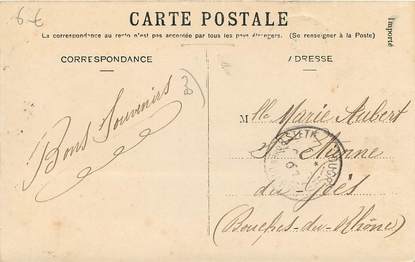 6€
CARTE POSTALE
La correspondance au recto n'est pas acceptée par tous les pays étrangers. (Se renseigner à la Poste)
Importé
CORRESPONDANCE
ADRESSE
Bons Souvenirs
Mlle Marie Aubert
St Etienne
du Grès
(Bouches-du-Rhône)